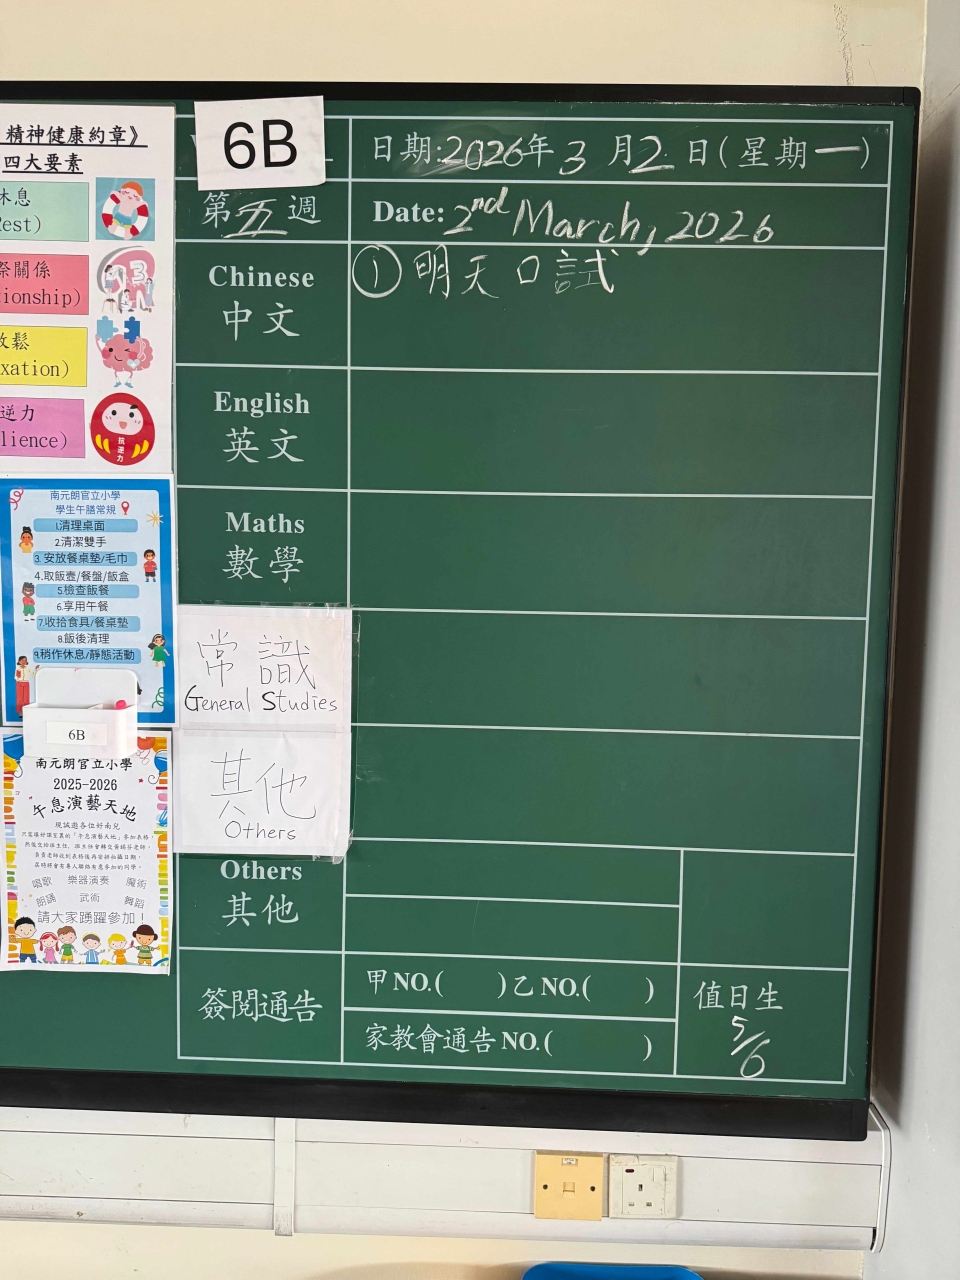 精神健康約章》
四大要素
休息
Rest)
際關係
tionship)
放鬆
xation)
逆力
lience)
抗逆力
南元朗官立小學
學生午膳常規
1.清理桌面
2.清潔雙手
3.安放餐桌墊/毛巾
4.取飯壺/餐盤/飯盒
5.檢查飯餐
6.享用午餐
7.收拾食具/餐桌墊
8.飯後清理
9.稍作休息/靜態活動
6B
南元朗官立小學
2025-2026
午息演藝天地
現誠邀各位好南兒
唱歌 樂器演奏 魔術
朗誦 武術 舞蹈
請大家踴躍參加！
6B
日期:2026年3月2日(星期一)
第五週
Date: 2nd March, 2026
Chinese
中文
① 明天口試
English
英文
Maths
數學
常識
General Studies
其他
Others
Others
其他
簽閱通告
甲NO.( )乙NO.( )
家教會通告NO.( )
值日生
5/6